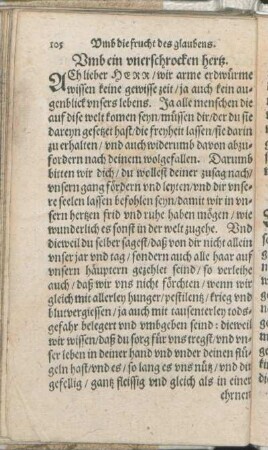 105 Vmb die frucht des glaubens.
Vmb ein vnerschrocken hertz.
ACh lieber HERR/ wir arme erdwürme
wissen keine gewisse zeit/ ja auch kein au-
genblick vnsers lebens. Ja alle menschen die
auf dise welt komen seyn/ müssen dir/ der du sie
dareyn gesetzt hast/ die freyheit lassen/ sie darin
zu erhalten/ vnd auch widerumb davon abzu-
fordern nach deinem wolgefallen. Darumb
bitten wir dich/ du wollest deiner zusag nach/
vnsern gang fördern vnd leyten/ vnd dir vnse-
re seelen lassen befohlen seyn/ damit wir in vn-
sern hertzen frid vnd ruhe haben mögen/ wie
wunderlich es sonst in der welt zugehe. Vnd
dieweil du selber sagest/ daß von dir nicht allein
vnser jar vnd tag/ sondern auch alle haar auf
vnsern häuptern gezehlet seind/ so verleihe
auch/ daß wir vns nicht förchten/ wenn wir
gleich mit allerley hunger/ pestilentz/ krieg vnd
blutvergiessen/ ja auch mit tausenterley tods-
gefahr belegert vnd vmbgeben seind: dieweil
wir wissen/ daß du sorg für vns tregst/ vnd vn-
ser leben in deiner hand vnd vnder deinen flü-
geln hast/ vnd es/ so lang es vns nütz/ vnd dir
gefellig/ gantz fleissig vnd gleich als in einer
ehrnen